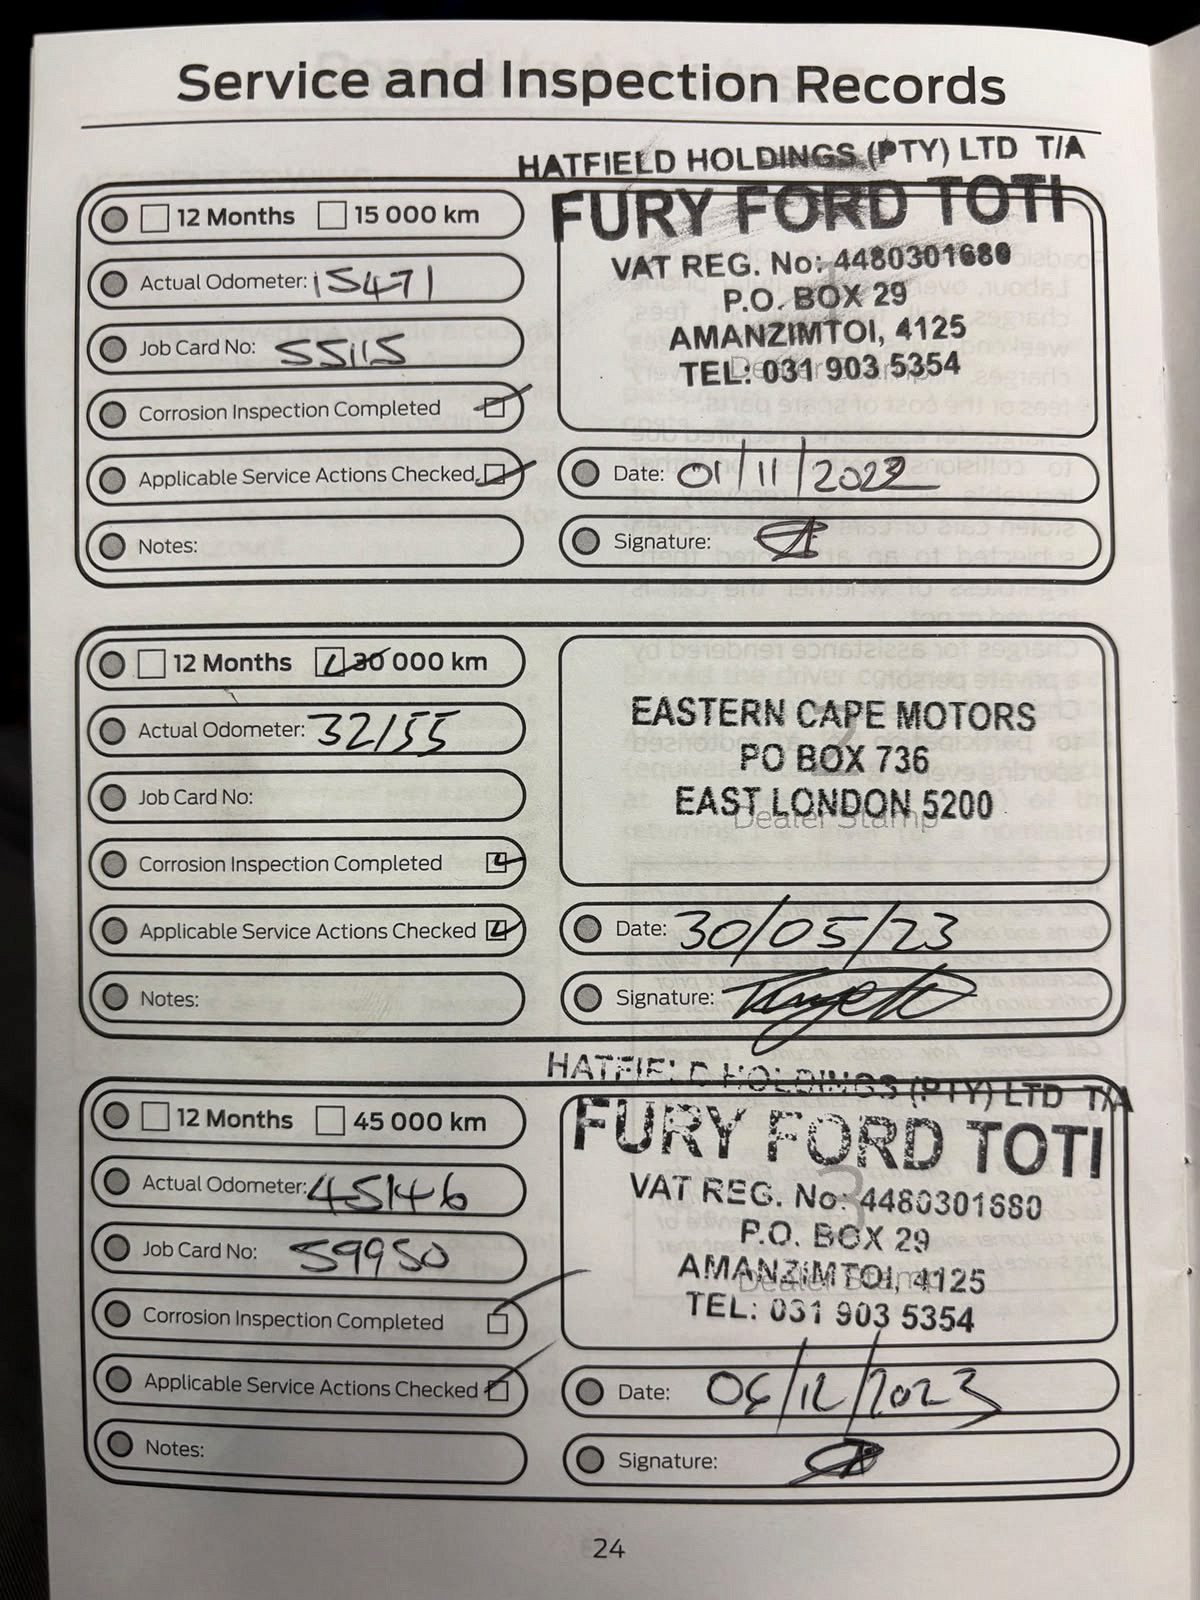 Service and Inspection Records
HATFIELD HOLDINGS (PTY) LTD T/A
FURY FORD TOTI
VAT REG. No: 4480301680
P.O. BOX 29
AMANZIMTOI, 4125
TEL: 031 903 5354
Dealer Stamp
12 Months 15 000 km
Actual Odometer: 15471
Job Card No: 55115
Corrosion Inspection Completed
Applicable Service Actions Checked
Notes:
Date: 01/11/2022
Signature:
12 Months 30 000 km
Actual Odometer: 32155
Job Card No:
Corrosion Inspection Completed
Applicable Service Actions Checked
Notes:
2
EASTERN CAPE MOTORS
PO BOX 736
EAST LONDON 5200
Dealer Stamp
Date: 30/05/23
Signature:
HATFIELD HOLDINGS (PTY) LTD T/A
FURY FORD TOTI
VAT REG. No: 4480301680
3
P.O. BOX 29
AMANZIMTOI, 4125
Dealer Stamp
TEL: 031 903 5354
12 Months 45 000 km
Actual Odometer: 45146
Job Card No: 59950
Corrosion Inspection Completed
Applicable Service Actions Checked
Notes:
Date: /12/2023
Signature:
24